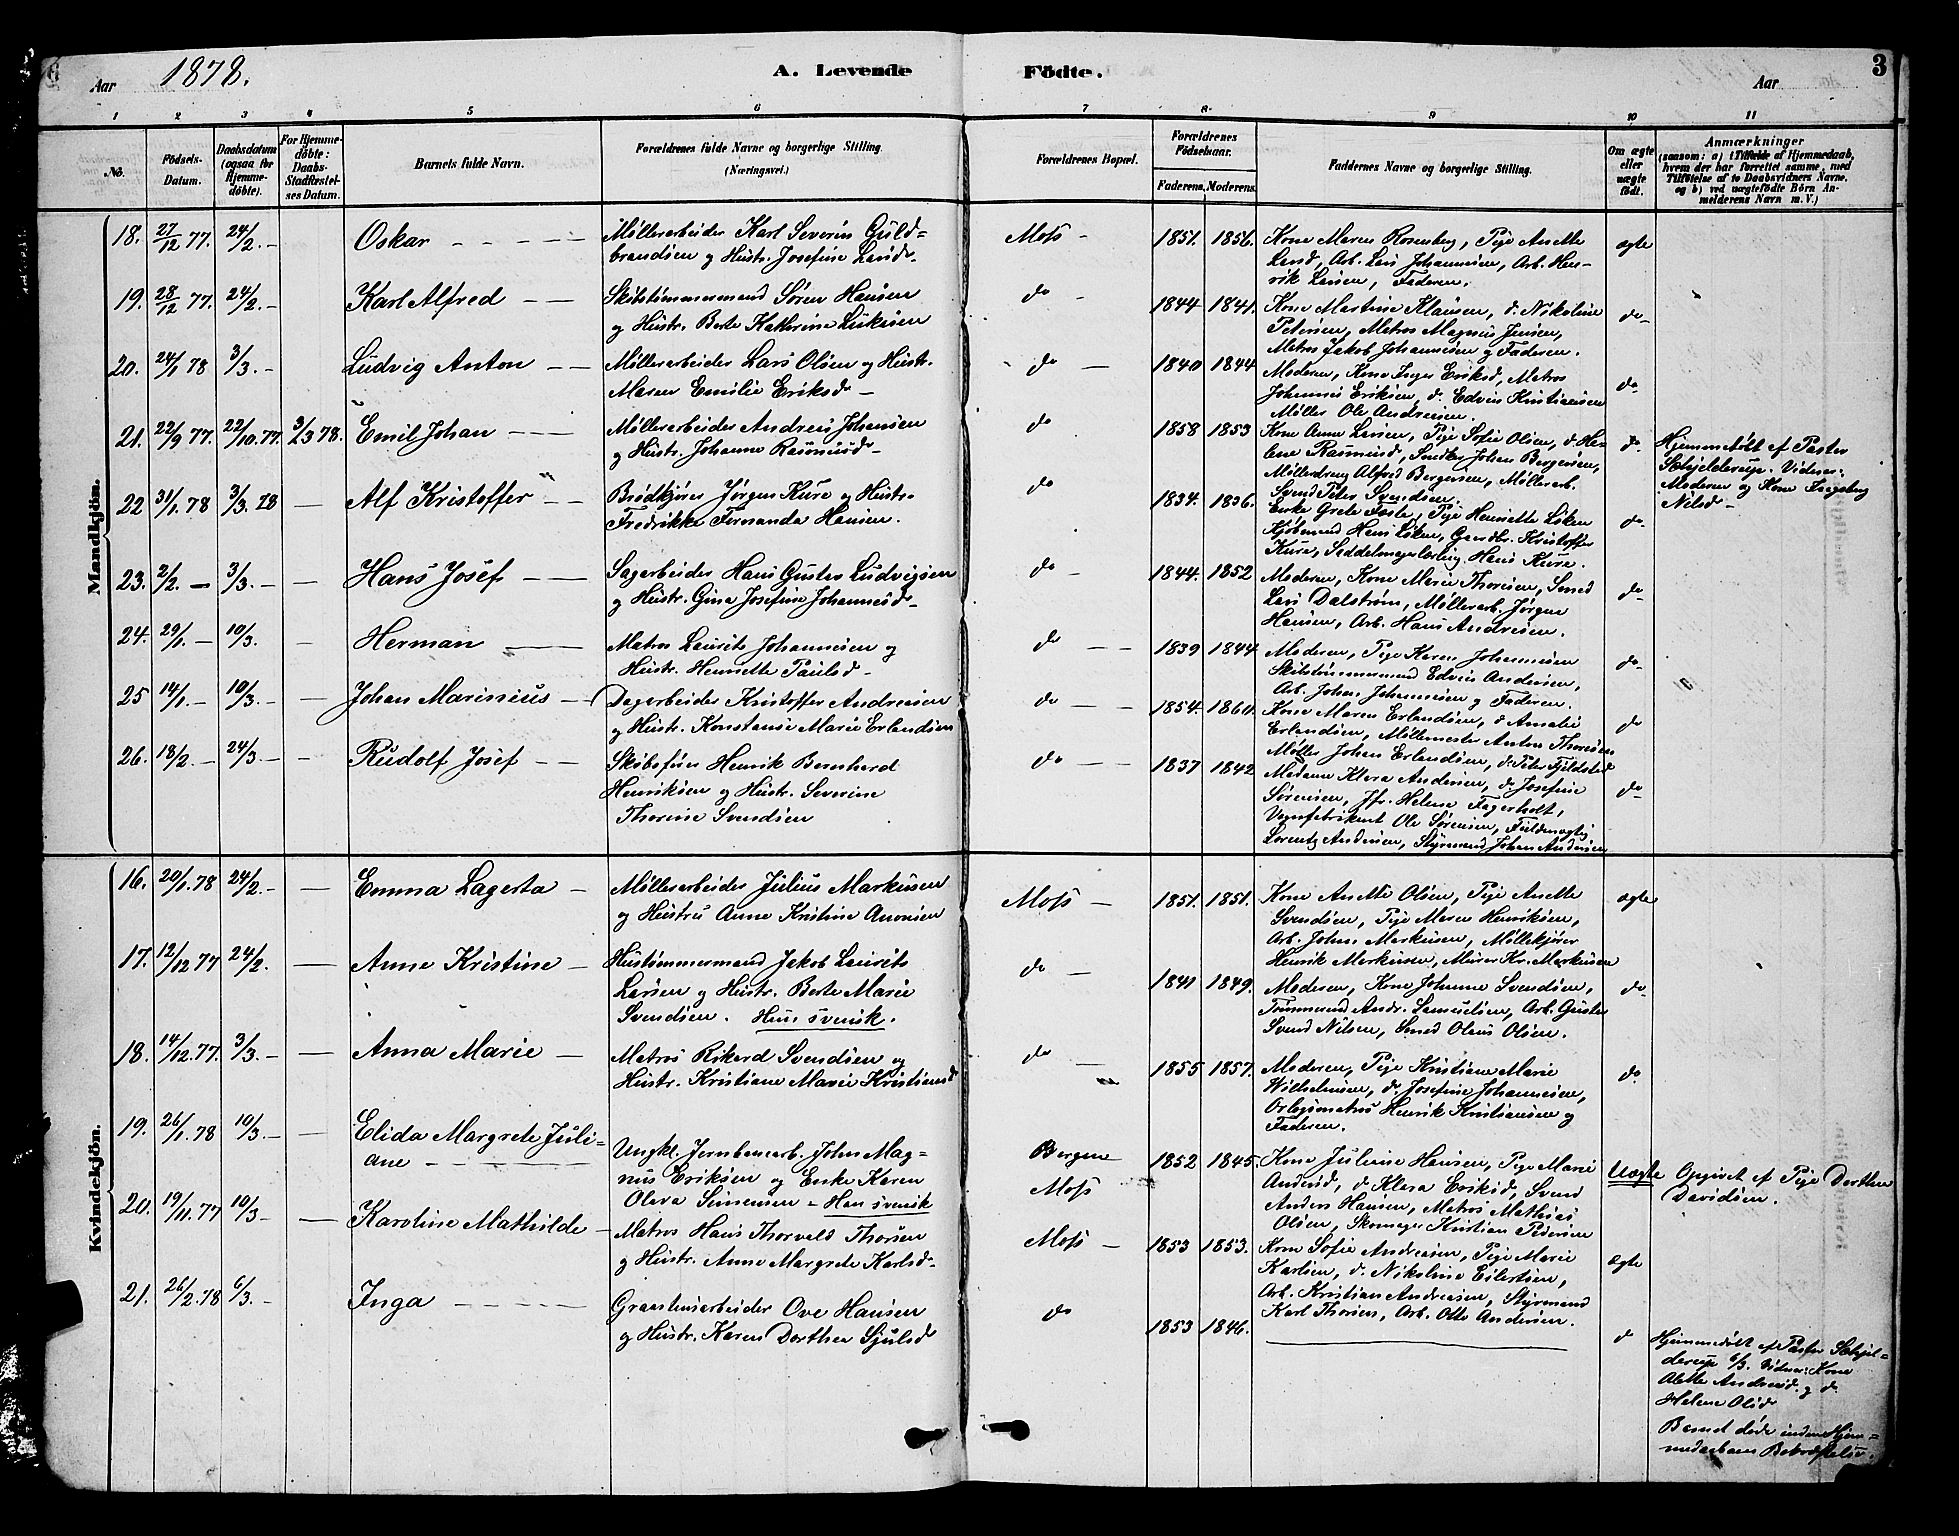 Aar 1878.
A. Levende Födte.
Aar
3
1 2 3 4 5 6 7 8 9 10 11
No.
Födsels-Datum.
Daabsdatum (ogsaa for Hjemmedöbte).
For Hjemmedöbte: Daabs-Stadfæstelses Datum.
Barnets fulde Navn.
Forældrenes fulde Navne og borgerlige Stilling (Næringsvei.)
Forældrenes Bopæl.
Forældrenes Födselsaar.
Faderens. Moderens.
Faddernes Navne og borgerlige Stilling.
Om ægte eller uægte födt.
Anmærkninger
(saasom: a) i Tilfælde af Hjemmedaab,
hvem der har forrettet samme, med
Tilföielse af to Daabsvidners Navne,
og b) ved uægtefödte Börn Anmelderens Navn m. V.)
Mandkjön.
18. 27/12 77. 24/2. - Oskar
Möllerarbeider Karl Severin Guldbrandsen og Hustr. Josefine Larsd.
Moss - 1851. 1856.
Kone Maren Rosenberg, Pige Anette
Lund, Arb. Lars Johannesen, Arb. Henrik Larsen, Faderen.
ægte
19. 28/12 77. 24/2. - Karl Alfred
Skibstömmermand Sören Hansen
og Hustr. Berte Kathrine
do - 1844 1841.
Kone Martine Klausen, do Nikoline
Petersen, Matros Magnus Jensen,
Matros Jakob Johannesen og Faderen.
do
20. 24/1 78 3/3. - Ludvig Anton
Möllerarbeider Lars Olsen og Hustr.
Maren Emilie Eriksd.
do - 1840 1844
Moderen, Kone Inger Eriksd, Matros
Johannes Eriksen, do Edvin Kristiansen
Möller Ole Andresen.
do
21. 22/9 77. 22/10. 77. 3/3 78. Emil Johan
Möllerarbeider Andreas Johansen
og Hustr. Johanne Rasmusd.
do 1858 1853
Kone Anne Larsen, Pige Sofie Olsen, do Helene Rasmusd, Johan Bergersen,
Mölledreng Alfred Bergersen, Möllerarb.
Svend Peter Svendsen.
do
Hjemmedöbt af Pastor
Schjelderup. Vidner:
Moderen og Kone Ingeborg
Nilsd.
22 31/1. 78 3/3. 78 - Alf Kristoffer
Brödkjörer Jörgen Kure og Hustr.
Fredrikke Fernanda Hansen.
do 1834. 1836.
Enke Grete Faste, Pige Henriette Löken
Kjöbmand Hans Löken, Gaardbr. Kristoffer
Kure, Sadelmagerlærling Hans Kure.
do
23. 2/2. - 3/3. - Hans Josef
Sagarbeider Hans Gustav Ludvigsen
og Hustr. Gina Josefine Johannesd.
do - 1844. 1852
Moderen, Kone Marie Thoresen, Smed
Lars Dalström, Möllerarb. Jörgen
Hansen, Arb. Hans Andresen.
do
24. 29/1. - 10/3. - Herman
Matros Laurits Johannesen og
Hustr. Henriette Paulsd.
do 1839 1844
Moderen, Pige Karen Johannesen
Skibstömmermand Edvin Andersen,
Arb. Johan Johannesen og Faderen.
do
25 14/1. - 10/3. - Johan Marinius
Dagarbeider Kristoffer Andreasen
og Hustr. Konstanse Marie Erlandsen
do 1854. 1860.
Kone Maren Erlandsen, do Amalie
Erlandsen, Möllemester Anton Thoresen
Möller Johan Erlandsen, do Peter Fjeldstad
do
26. 18/2. - 24/3. - Rudolf Josef
Skibsförer Henrik Bernhard
Henriksen og Hustr. Severine
Thorine Svendsen
do 1837 1842
Madame Klara Andersen, do Josefine
Sörensen, Jfr. Helene Fagerholt,
Vognfabrikant Ole Sörensen, Fuldmægtig
Lorentz Andersen, Styrmand Johan Andersen
do
Kvindekjön.
16. 20/1. 78 24/2. - Emma Lagerta
Möllerarbeider Julius Markusen
og Hustru Anne Kristine Aronsen
Moss - 1851. 1851.
Kone Anette Olsen, Pige Anette
Svendsen, Pige Maren Henriksen,
Arb. Johan Markusen, Möllekjörer
Henrik Markusen, Murer Kr. Markusen
ægte
17. 12/12 77 24/2. - Anne Kristine
Hustömmermand Jakob Laurits
Larsen og Hustr. Berte Marie
Svendsen. Hun svensk.
do 1841 1849.
Moderen, Kone Johanne Svendsen,
Tömmermd Andr. Samuelsen, Arb. Gustav
Svend Nilsen, Smed Olaus Olsen.
do
18. 14/12. 77. 3/3. - Anna Marie
Matros Rikard Svendsen og
Hustr. Kristiane Marie Kristiansd
do 1855 1857.
Moderen, Pige Kristiane Marie
Wilhelmsen, do Josefine Johannesen,
Orlogsmatros Henrik Kristiansen og
Faderen.
do
19. 26/1. 78 10/3. - Elida Margrete Juliane
Ungkl. Jernbanearb. John Magnus Eriksen og Enke Karen
Olava Simensen - Han svensk
Bergen
Moss
1852 1845.
Kone Juliane Hansen, Pige Marie
Andersd, do Klara Eriksd, Svend
Anders Hansen, Matros Mathias
Olsen, Skomager Kristian Pedersen
Uægte
Opgivet af Pige Dorthea
Davidsen.
20. 19/11. 77 10/3 - Karoline Mathilde
Matros Hans Thorvald Thorsen
og Hustr. Anne Margrete Karlsd.
Moss - 1853 1853.
Kone Sofie Andreasen, Pige Marie
Karlsen, do Nikoline Eilertsen,
Arb. Kristian Andreasen, Styrmand
Karl Thorsen, Arb. Otto Andersen.
ægte
21. 26/2. 78 6/3. - Inga
Graastensarbeider Ove Hansen
og Hustr. Karen Dorthea Sjulsd
do 1853 1846.
do
Hjemmedöbt af Pastor Schjelderup 6/3. Vidner: Kone
Alette Andreasd. og do
Helene Olsd
Barnet döde inden Hjemmedaabens Bekræftelse.